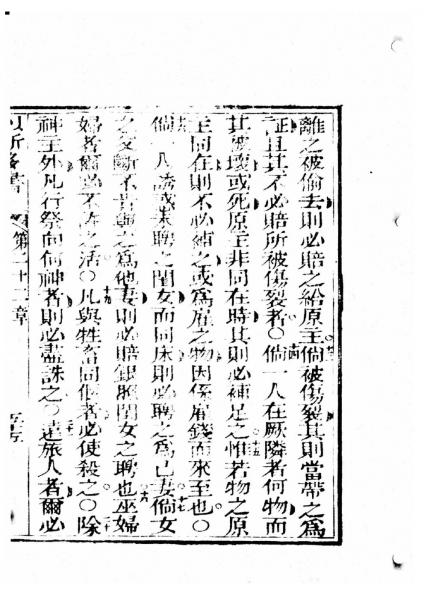 離之被偷去則必賠之給原主倘被傷裂其則當帶之為
証且其不必賠所被傷裂者○倘一人在厥隣者何物而
其被壞或死原主非同在時其則必補足之惟若物之原
主同在則不必補之或為雇之物因係雇錢而來至也○
倘一人誘惑未聘之閨女而同床則必聘之為己妻倘女
之父斷不肯與之為他妻則必賠銀照閨女之聘也巫婦
婦者爾當不許之活○凡與牲畜同個者必使殺之○除
神主外凡行祭向何神者則必盡誅之○遠旅人者爾必
第二十二章